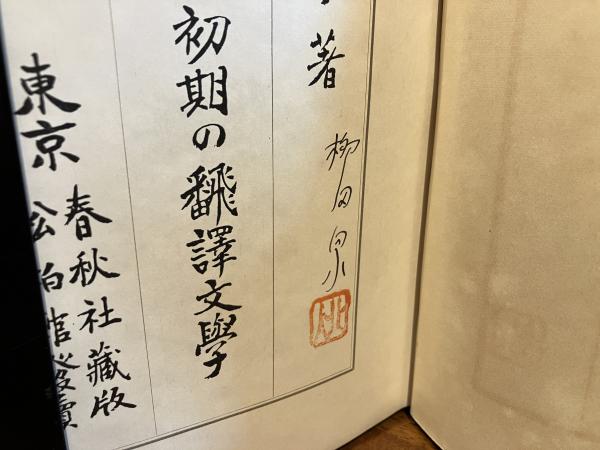 著
柳田泉
初期の飜譯文學
東京
春秋社藏版
松柏館發賣